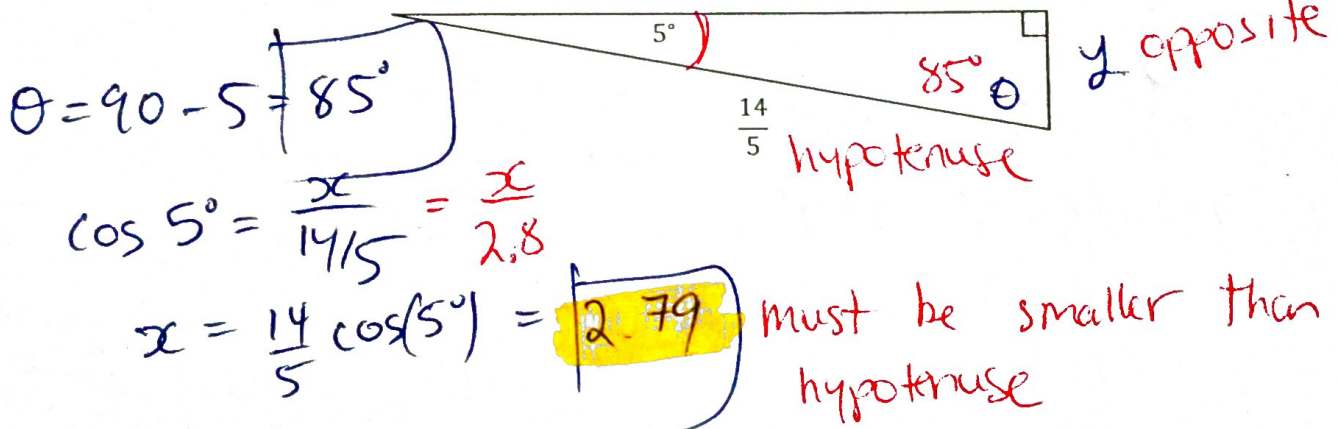 5°
y opposite
85° θ
14/5 hypotenuse
θ = 90 - 5 = 85°
cos 5° = x/(14/5) = x/2.8
x = 14/5 cos(5°) = 2.79 must be smaller than
hypotenuse